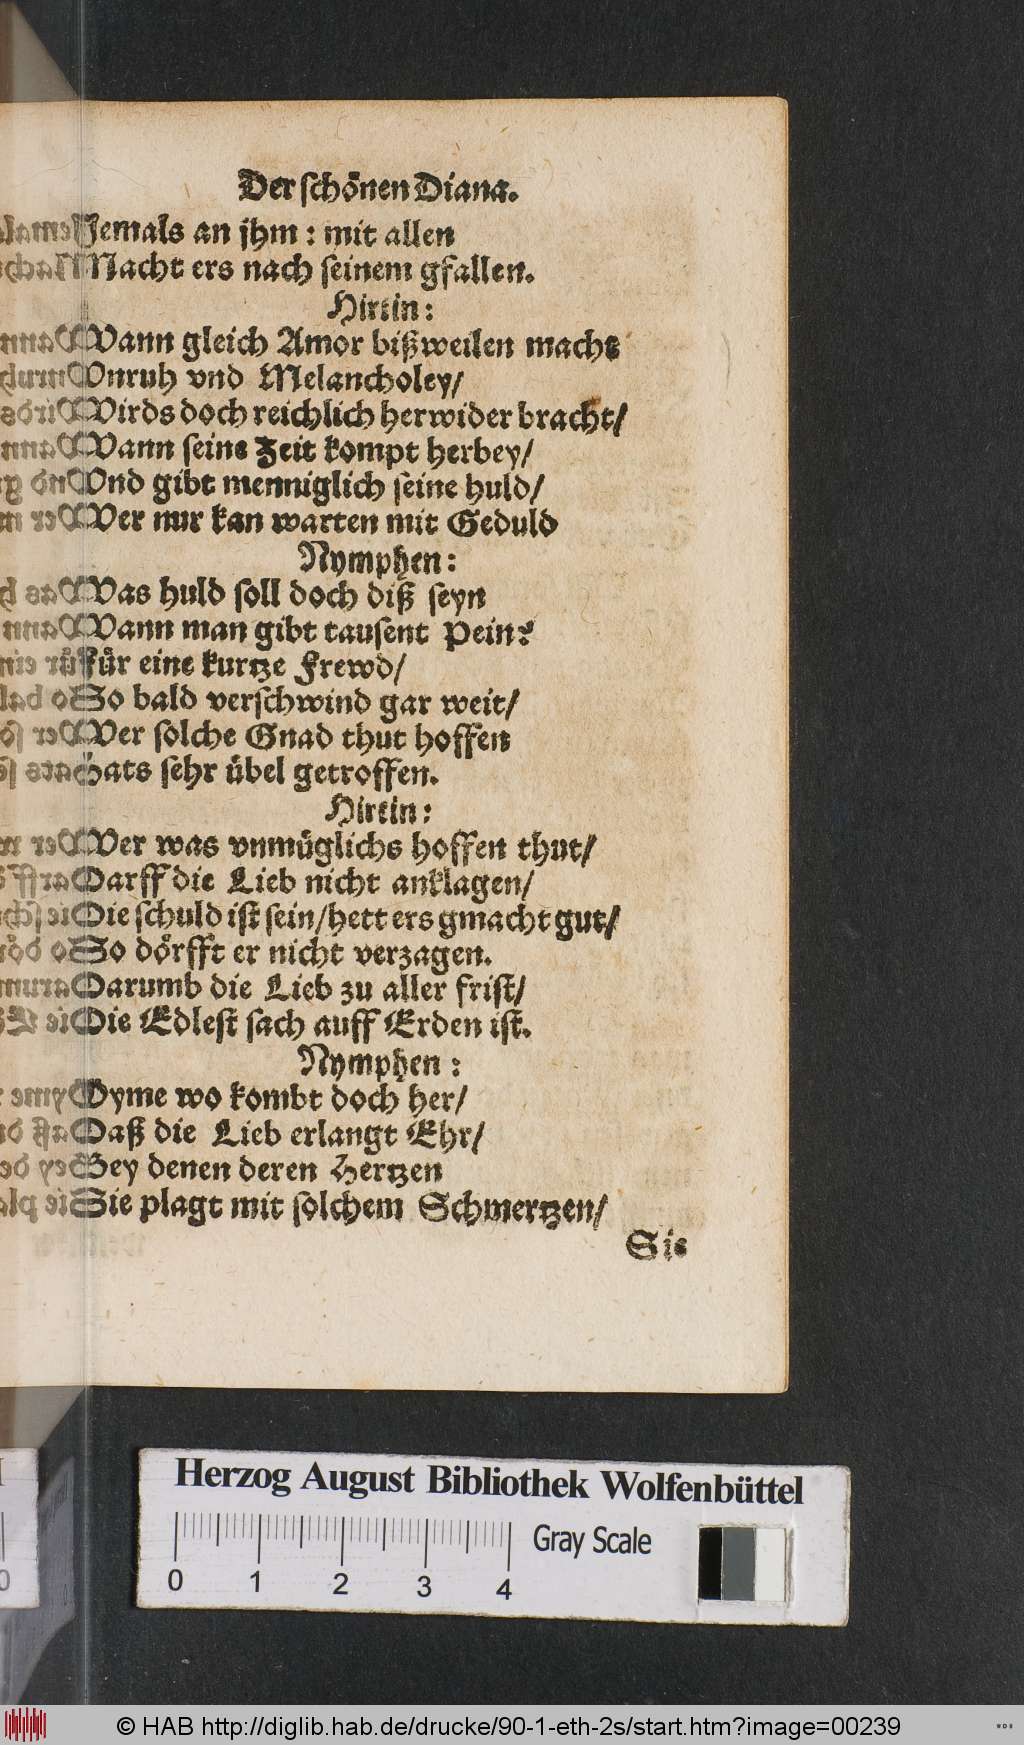 Der schönen Diana.
Jemals an jhm : mit allen
Macht ers nach seinem gfallen.
Hirtin :
Wann gleich Amor bißweilen macht
Vnruh vnd Melancholey/
Wirds doch reichlich herwider bracht/
Wann seine Zeit kompt herbey/
Vnd gibt menniglich seine huld/
Wer nur kan warten mit Geduld
Nymphen :
Was huld soll doch diß seyn
Wann man gibt tausent Pein?
Für eine kurtze Frewd/
So bald verschwind gar weit/
Wer solche Gnad thut hoffen
Hats sehr übel getroffen.
Hirtin :
Wer was vnmüglichs hoffen thut/
Darff die Lieb nicht anklagen/
Die schuld ist sein/hett ers gmacht gut/
So dörfft er nicht verzagen.
Darumb die Lieb zu aller frist/
Die Edlest sach auff Erden ist.
Nymphen :
Oyme wo kombt doch her/
Daß die Lieb erlangt Ehr/
Bey denen deren Hertzen
Sie plagt mit solchem Schmertzen/
Sie
Herzog August Bibliothek Wolfenbüttel
Gray Scale
0 1 2 3 4
© HAB http://diglib.hab.de/drucke/90-1-eth-2s/start.htm?image=00239